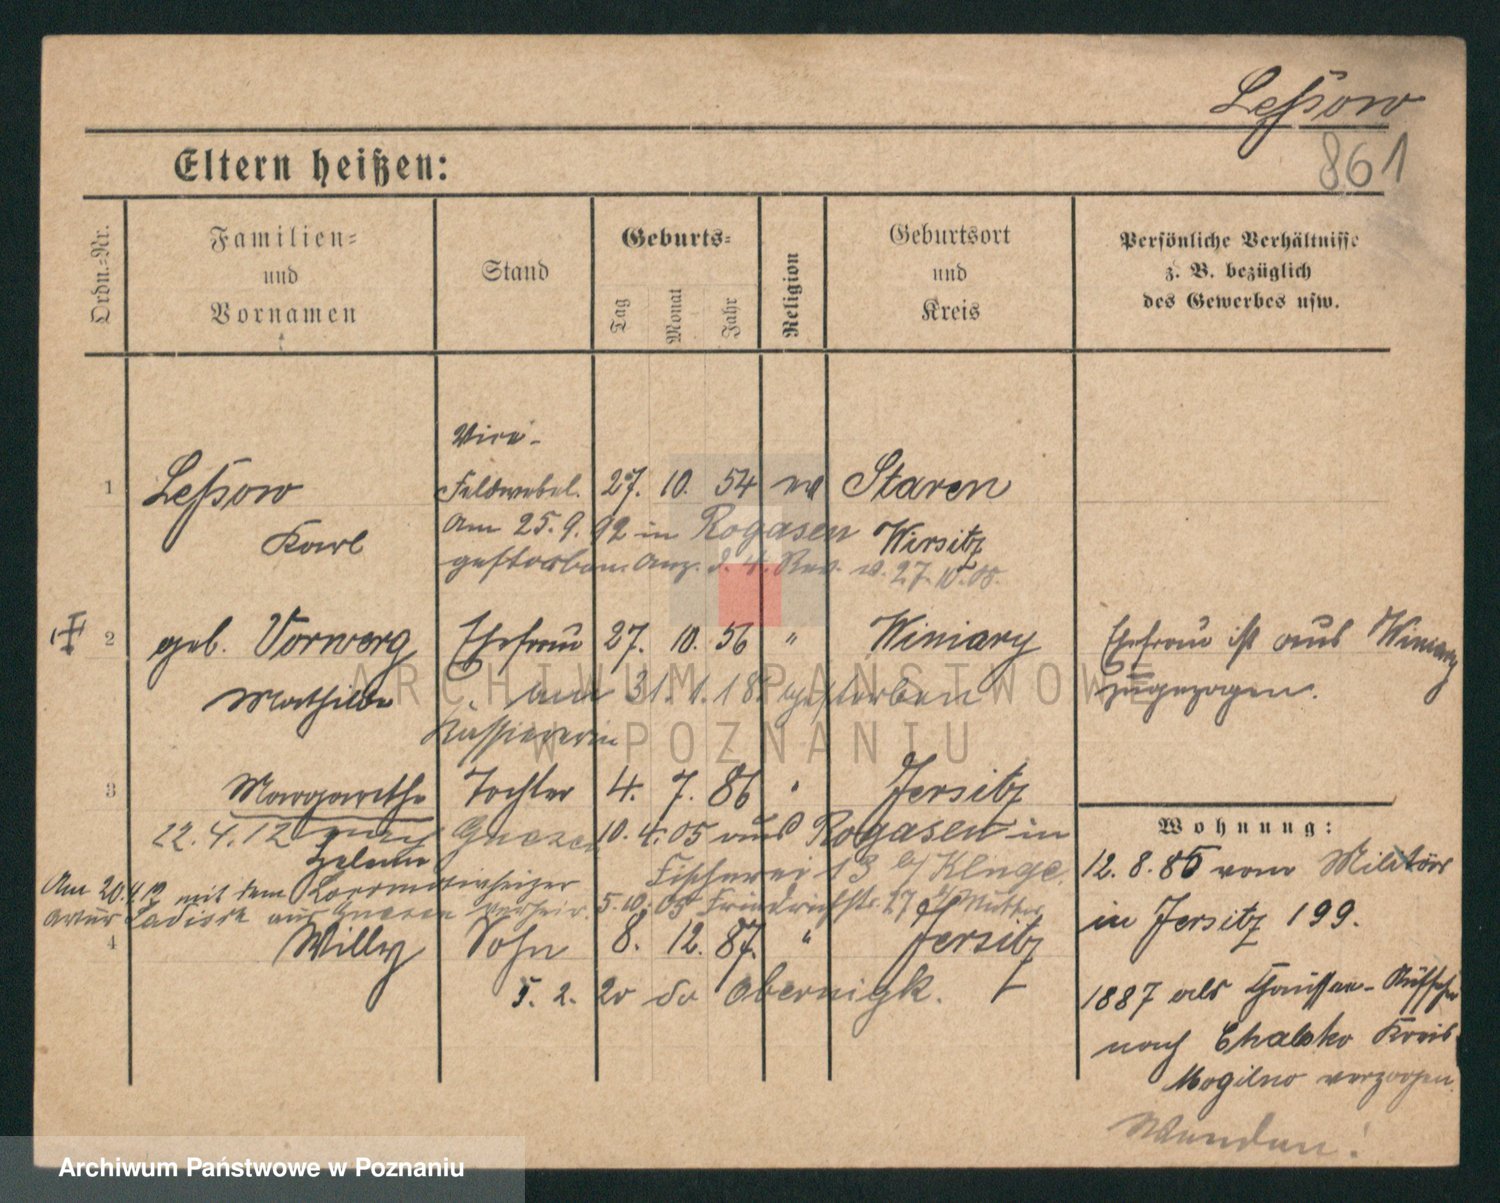 Leßow
861
Eltern heißen:
Ordn.-Nr.
Familien-
und
Vornamen
Stand
Geburts-
Tag
Monat
Jahr
Religion
Geburtsort
und
Kreis
Persönliche Verhältnisse
z. B. bezüglich
des Gewerbes usw.
Vice-
1 Leßow Feldwebel. 27. 10. 54 ev Staren
Karl Wirsitz
Am 25.9.92 in Rogasen
gestorben. Anz. d. 4. Rev. v. 27.10.08.
2 geb. Vorwerg Ehefrau 27. 10. 56 " Winiary
Mathilde am 31.1.18. gestorben
Kassiererin
Ehefrau ist aus Winiary
zugezogen.
3 Margarethe Tochter 4. 7. 86 " Jersitz
22.4.12 nach Gnesen 10. 4. 05 aus Rogasen in
Helene Fischerei 13 b/ Kluge.
Am 20.4.12 mit dem Lokomotivheizer
aus Gnesen verheir. 5.10.05 Friedrichstr. 27 Mutter
4 Willy Sohn 8. 12. 87. " Jersitz
5. 2. 20 Obernigk.
Wohnung:
12. 8. 85 vom Militär
in Jersitz 199.
1887 als
nach Kreis
Mogilno verzogen.
Wenden!
ARCHIWUM PAŃSTWOWE
W POZNANIU
Archiwum Państwowe w Poznaniu